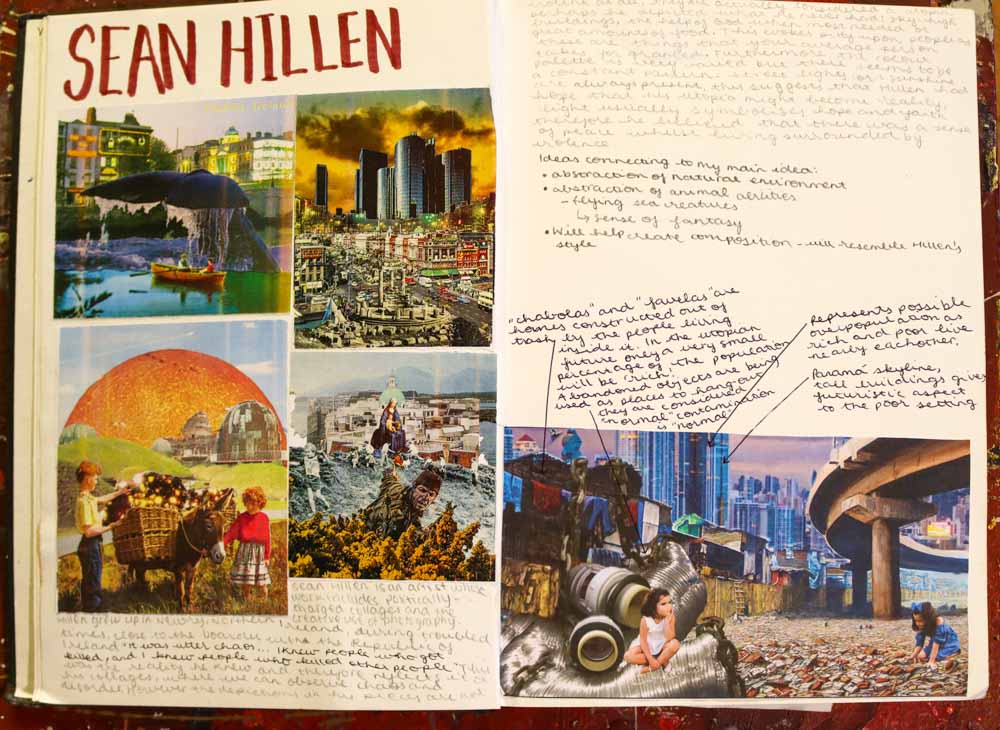 SEAN HILLEN
Ireland
Sean Hillen is an artist whose
work includes politically-
charged collages and the
creative use of photography.
Hillen grew up in Newry, Northern
Ireland, during troubled
times, close to the boarder with the Republic of
Ireland "it was utter chaos... I knew people who got
killed, and I knew people who killed other people" This
was the reality he knew and therefore reflects it on
his collages where we can observe chaos and
disorder, However the depictions in his pieces are not
violent at all, they're actually considered
perhaps utopian, what he never had: sky-high
buildings, the help of God when most needed or
great amounts of food. This evokes pity upon people as
these are things that your average person
takes for granted. Furthermore, the colour
palette is very varied but there seems to be
a constant medium: street lights or sunshine
is always present, this suggests that Hillen had
hope that his utopia might become reality,
light usually symbolises hope and faith
therefore he believed that there was a sense
of peace whilst living surrounded by
violence
Ideas connecting to my main idea:
• abstraction of natural environment
• abstraction of animal abilities
- flying sea creatures
↳ sense of fantasy
• Will help create composition - will resemble Hillen's
style
"chabolas" and "favelas" are
homes constructed out of
trash by the people living
inside it. In the utopian
future only a very small
percentage of the population
will be 'rich'.
Abandoned objects are being
used as places to hang out
they are considered
"normal" contamination
is "normal"
Represents possible
overpopulation as
rich and poor live
nearly eachother.
Panamá skyline,
tall buildings gives
futuristic aspect
to the poor setting